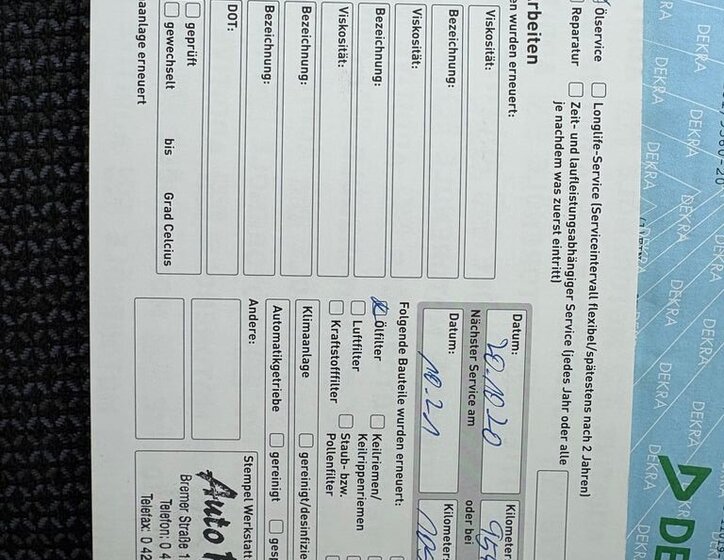 Ölservice
Longlife-Service (Serviceintervall flexibel/spätestens nach 2 Jahren)
Reparatur
Zeit- und laufleistungsabhängiger Service (jedes Jahr oder alle
je nachdem was zuerst eintritt)
rbeiten
en wurden erneuert:
Viskosität:
Bezeichnung:
Viskosität:
Bezeichnung:
Viskosität:
Bezeichnung:
Bezeichnung:
DOT:
geprüft
gewechselt
bis
Grad Celcius
aanlage erneuert
Datum:
20.10.20
Kilometer
Nächster Service am
oder bei
Datum:
10.21
Kilometer:
Folgende Bauteile wurden erneuert:
Ölfilter
Keilriemen/
Keilrippenriemen
Luftfilter
Staub- bzw.
Pollenfilter
Kraftstofffilter
Klimaanlage
gereinigt/desinfizie
Automatikgetriebe
gereinigt
Andere:
Stempel Werkstat
Auto
Bremer Straße 1
Telefon: 0 4
Telefax: 0 42
DEKRA
DEKRA
DEKRA
DEKRA
DEKRA
DEKRA
DEKRA
DE